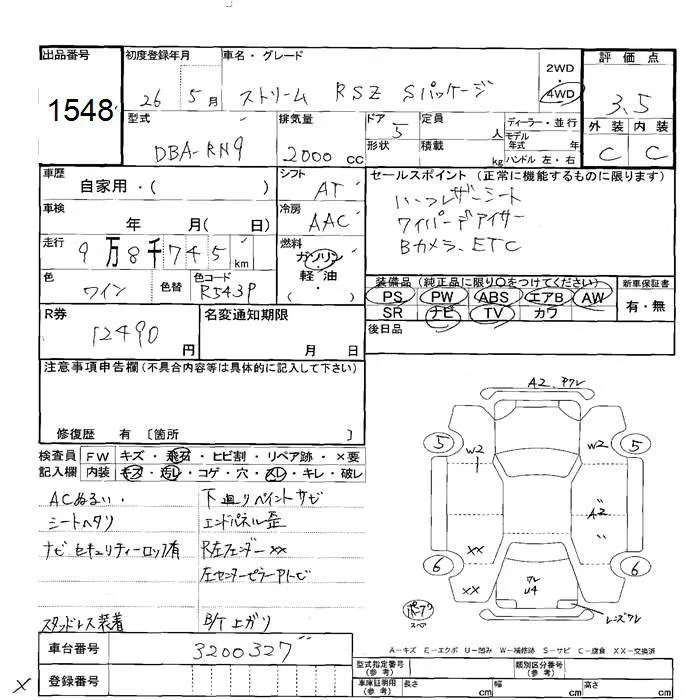 出品番号 初度登録年月 車名・グレード 評価点
1548 26 5月 ストリーム RSZ Sパッケージ 2WD・4WD 3.5
型式 排気量 ドア 定員 ディーラー・並行 外装 内装
DBA-RN9 2000 cc 5 人 モデル年式 年 C C
形状 積載 kg ハンドル 左・右
車歴 シフト セールスポイント(正常に機能するものに限ります)
自家用・( ) AT ハーフレザーシート
車検 冷房 ワイパーデアイサー
年 月( 日) AAC Bカメラ、ETC
走行 燃料
9万8千745km ガソリン・軽油・( )
色 色替 色コード 装備品(純正品に限り○をつけてください) 新車保証書
ワイン R543P PS PW ABS エアB AW 有・無
SR ナビ TV カワ
R券 名変通知期限 後日品
12490円 月 日
注意事項申告欄(不具合内容等は具体的に記入して下さい)
修復歴 有〔箇所 〕
検査員 FW キズ・飛石・ヒビ割・リペア跡・×要
記入欄 内装 キズ・汚レ・コゲ・穴・スレ・キレ・破レ
ACぬるい. 下廻りペイントサビ
シートヘタリ エンドパネル歪
ナビセキュリティーロック有 R左フェンダーxx
左センターピラーアトビ
スタッドレス装着 B/T上ガリ
A2、
5 W2 W2 5
A2
6 xx 6
xx U4
A-キズ E-エクボ U-凹み W-補修跡 S-サビ C-腐食 XX-交換済
車台番号 3200327
登録番号
型式指定番号(参考) 類別区分番号(参考)
車庫証明用(参考) 長さ cm 幅 cm 高さ cm
x